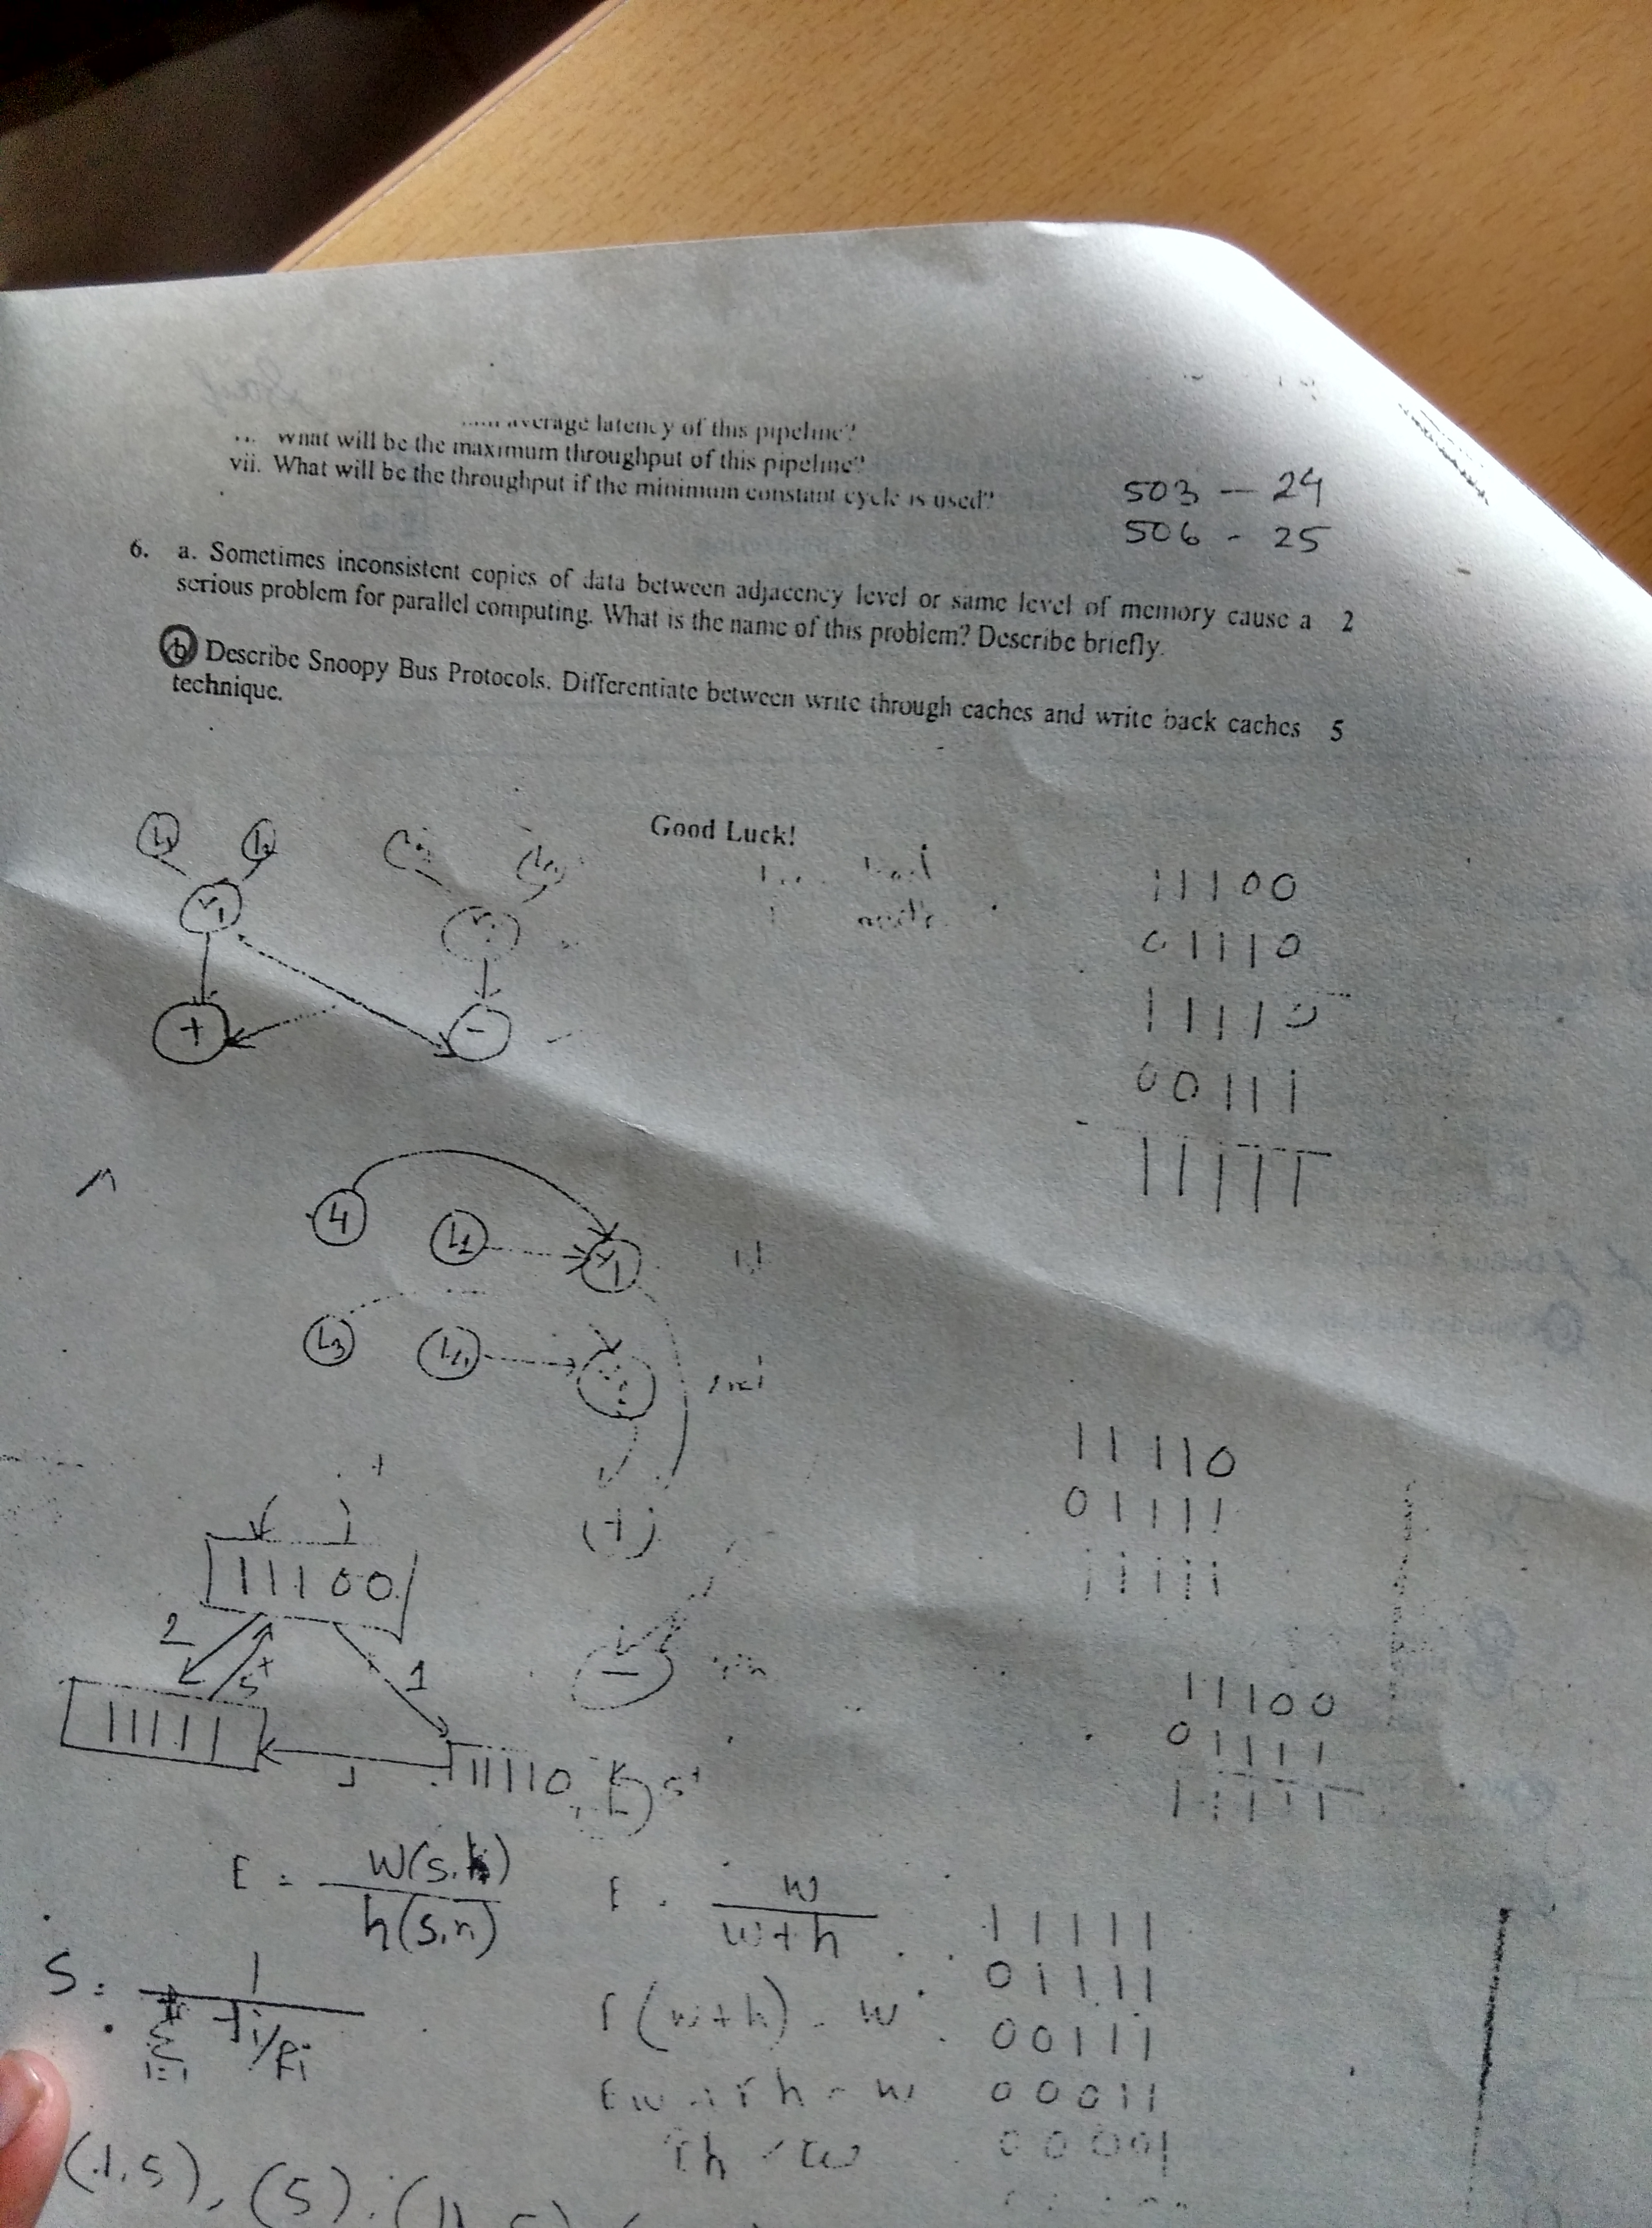 average latency of this pipeline?
What will be the maximum throughput of this pipeline?
vii. What will be the throughput if the minimum constant cycle is used?
503 - 24
506 - 25
6. a. Sometimes inconsistent copies of data between adjacency level or same level of memory cause a 2
serious problem for parallel computing. What is the name of this problem? Describe briefly.
b Describe Snoopy Bus Protocols. Differentiate between write through caches and write back caches 5
technique.
Good Luck!
11100
01110
11110
00111
11111
+ -
4 L2
L3 L4
11110
01111
11111
(+)
11100
2 5+ 1
-
11111
11110 5+
11100
01111
11111
E = W(s,n) / h(s,n)
E = w / w+h
S = 1 / Σ i=1 fi/Ri
(w+h) = w
h = w
11111
01111
00111
00011
00001
(1,5), (5),